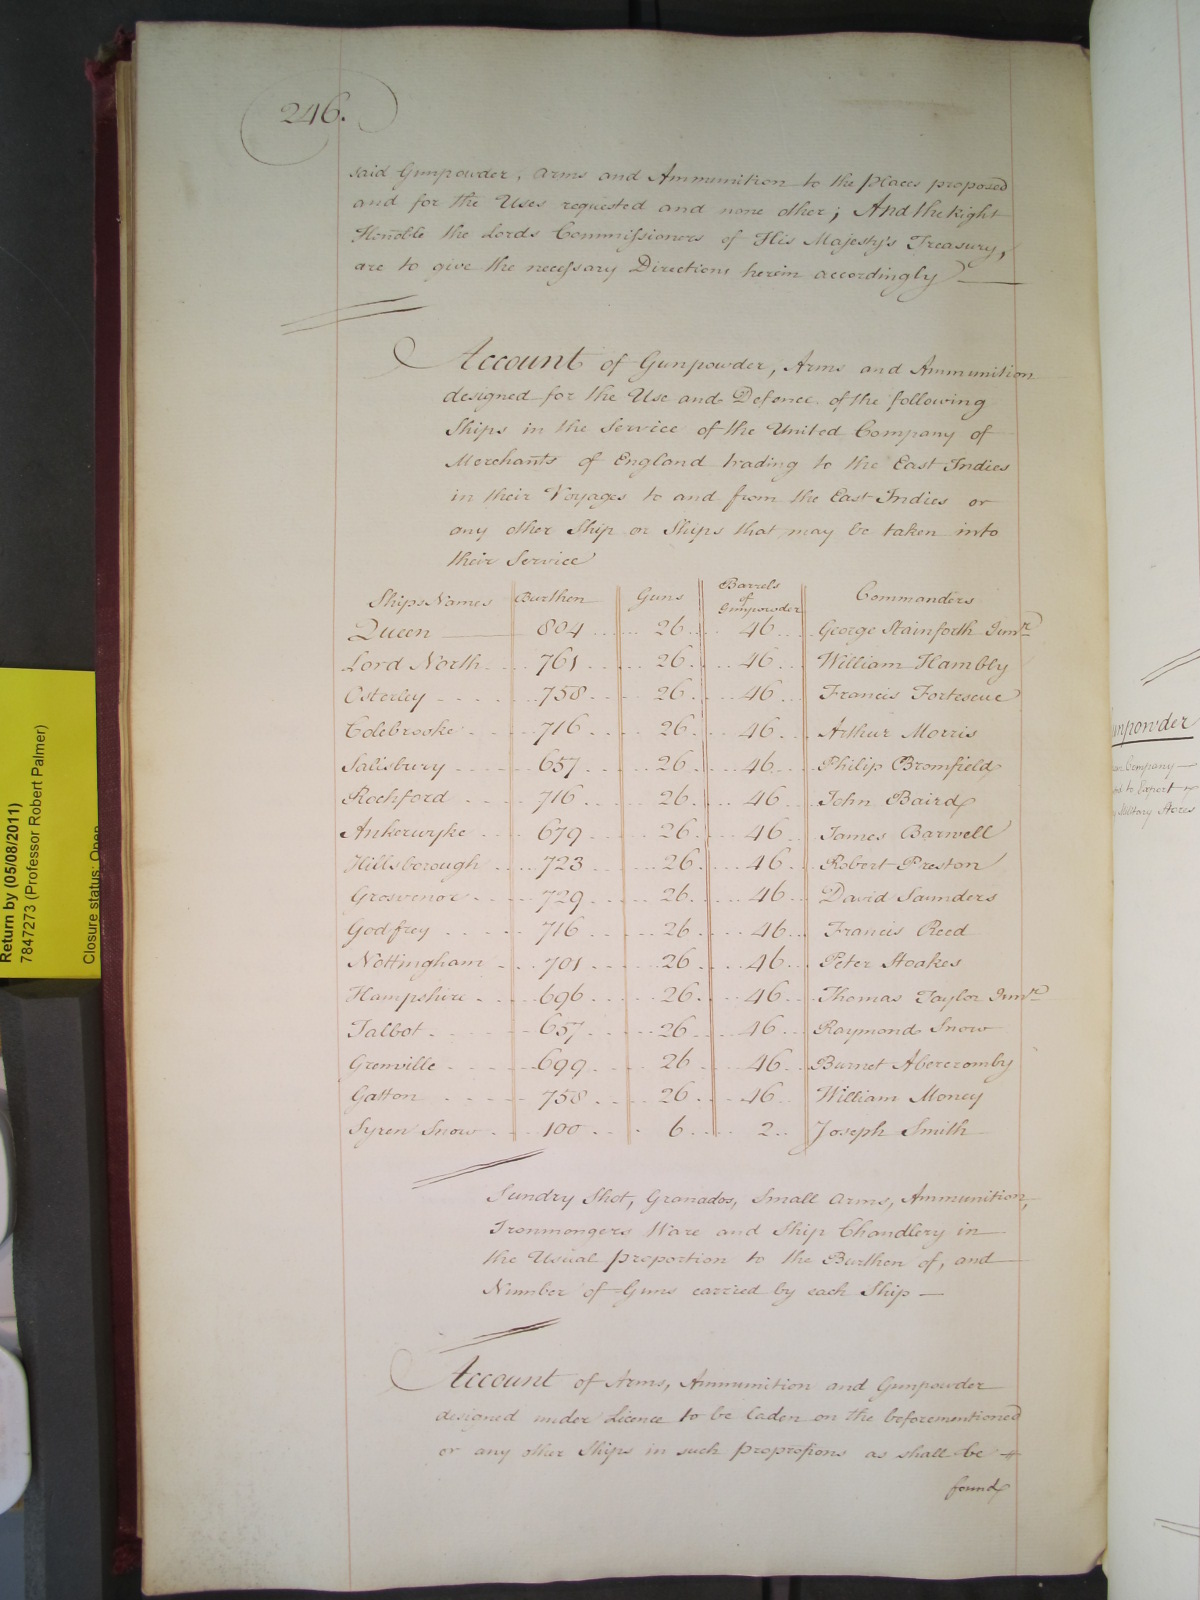 246.
said Gunpowder, Arms and Ammunition to the Places proposed
and for the Uses requested and none other; And the Right
Honoble the Lords Commissioners of His Majesty's Treasury,
are to give the necessary Directions herein accordingly
Account of Gunpowder, Arms and Ammunition
designed for the Use and Defence of the following
Ships in the Service of the United Company of
Merchants of England trading to the East Indies
in their Voyages to and from the East Indies or
any other Ship or Ships that may be taken into
their Service
Ships Names Burthen Guns Barrels of Gunpowder Commanders
Queen 804 26 46 George Stainforth Junr
Lord North 761 26 46 William Hambly
Osterley 758 26 46 Francis Fortescue
Colebrooke 716 26 46 Arthur Morris
Salisbury 657 26 46 Philip Bromfield
Rochford 716 26 46 John Baird
Ankerwyke 679 26 46 James Barwell
Hillsborough 723 26 46 Robert Preston
Grosvenor 729 26 46 David Saunders
Godfrey 716 26 46 Francis Reed
Nottingham 701 26 46 Peter Stoakes
Hampshire 696 26 46 Thomas Taylor Junr
Talbot 657 26 46 Raymond Snow
Grenville 699 26 46 Burnet Abercromby
Gatton 758 26 46 William Money
Syren Snow 100 6 2 Joseph Smith
Sundry Shot, Granados, Small Arms, Ammunition,
Ironmongers Ware and Ship Chandlery in
the Usual proportion to the Burthen of, and
Number of Guns carried by each Ship
Account of Arms, Ammunition and Gunpowder
designed under Licence to be laden on the beforementioned
or any other Ships in such proportions as shall be
found
Return by (05/08/2011)
7847273 (Professor Robert Palmer)
Closure status: Open
Company
to Export
Military Stores